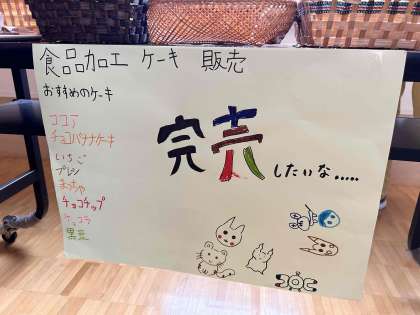 食品加工 ケーキ 販売
おすすめのケーキ
ココア
チョコバナナケーキ
いちご
プレーン
まっちゃ
チョコチップ
黒豆
完売したいな.....